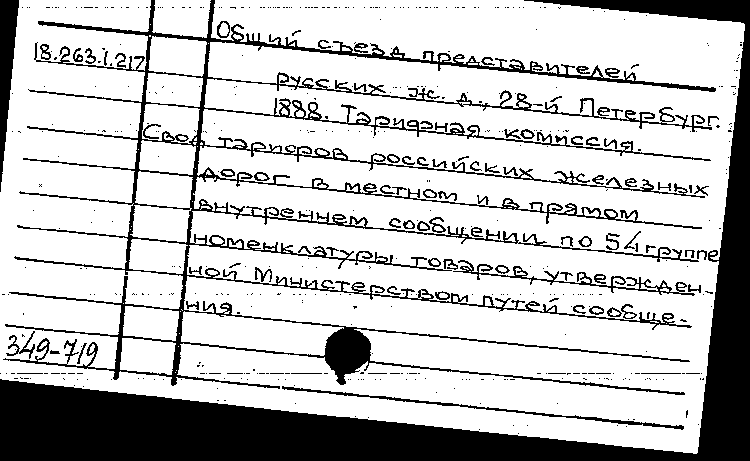 Общий съезд представителей
18.263.1.217
русских ж. д., 28-й Петербург.
1888. Тарифная комиссия.
Свод тарифов российских железных
дорог в местном и в прямом
внутреннем сообщении по 54 группе
номенклатуры товаров, утвержден-
ной Министерством путей сообще-
ния.
349-719